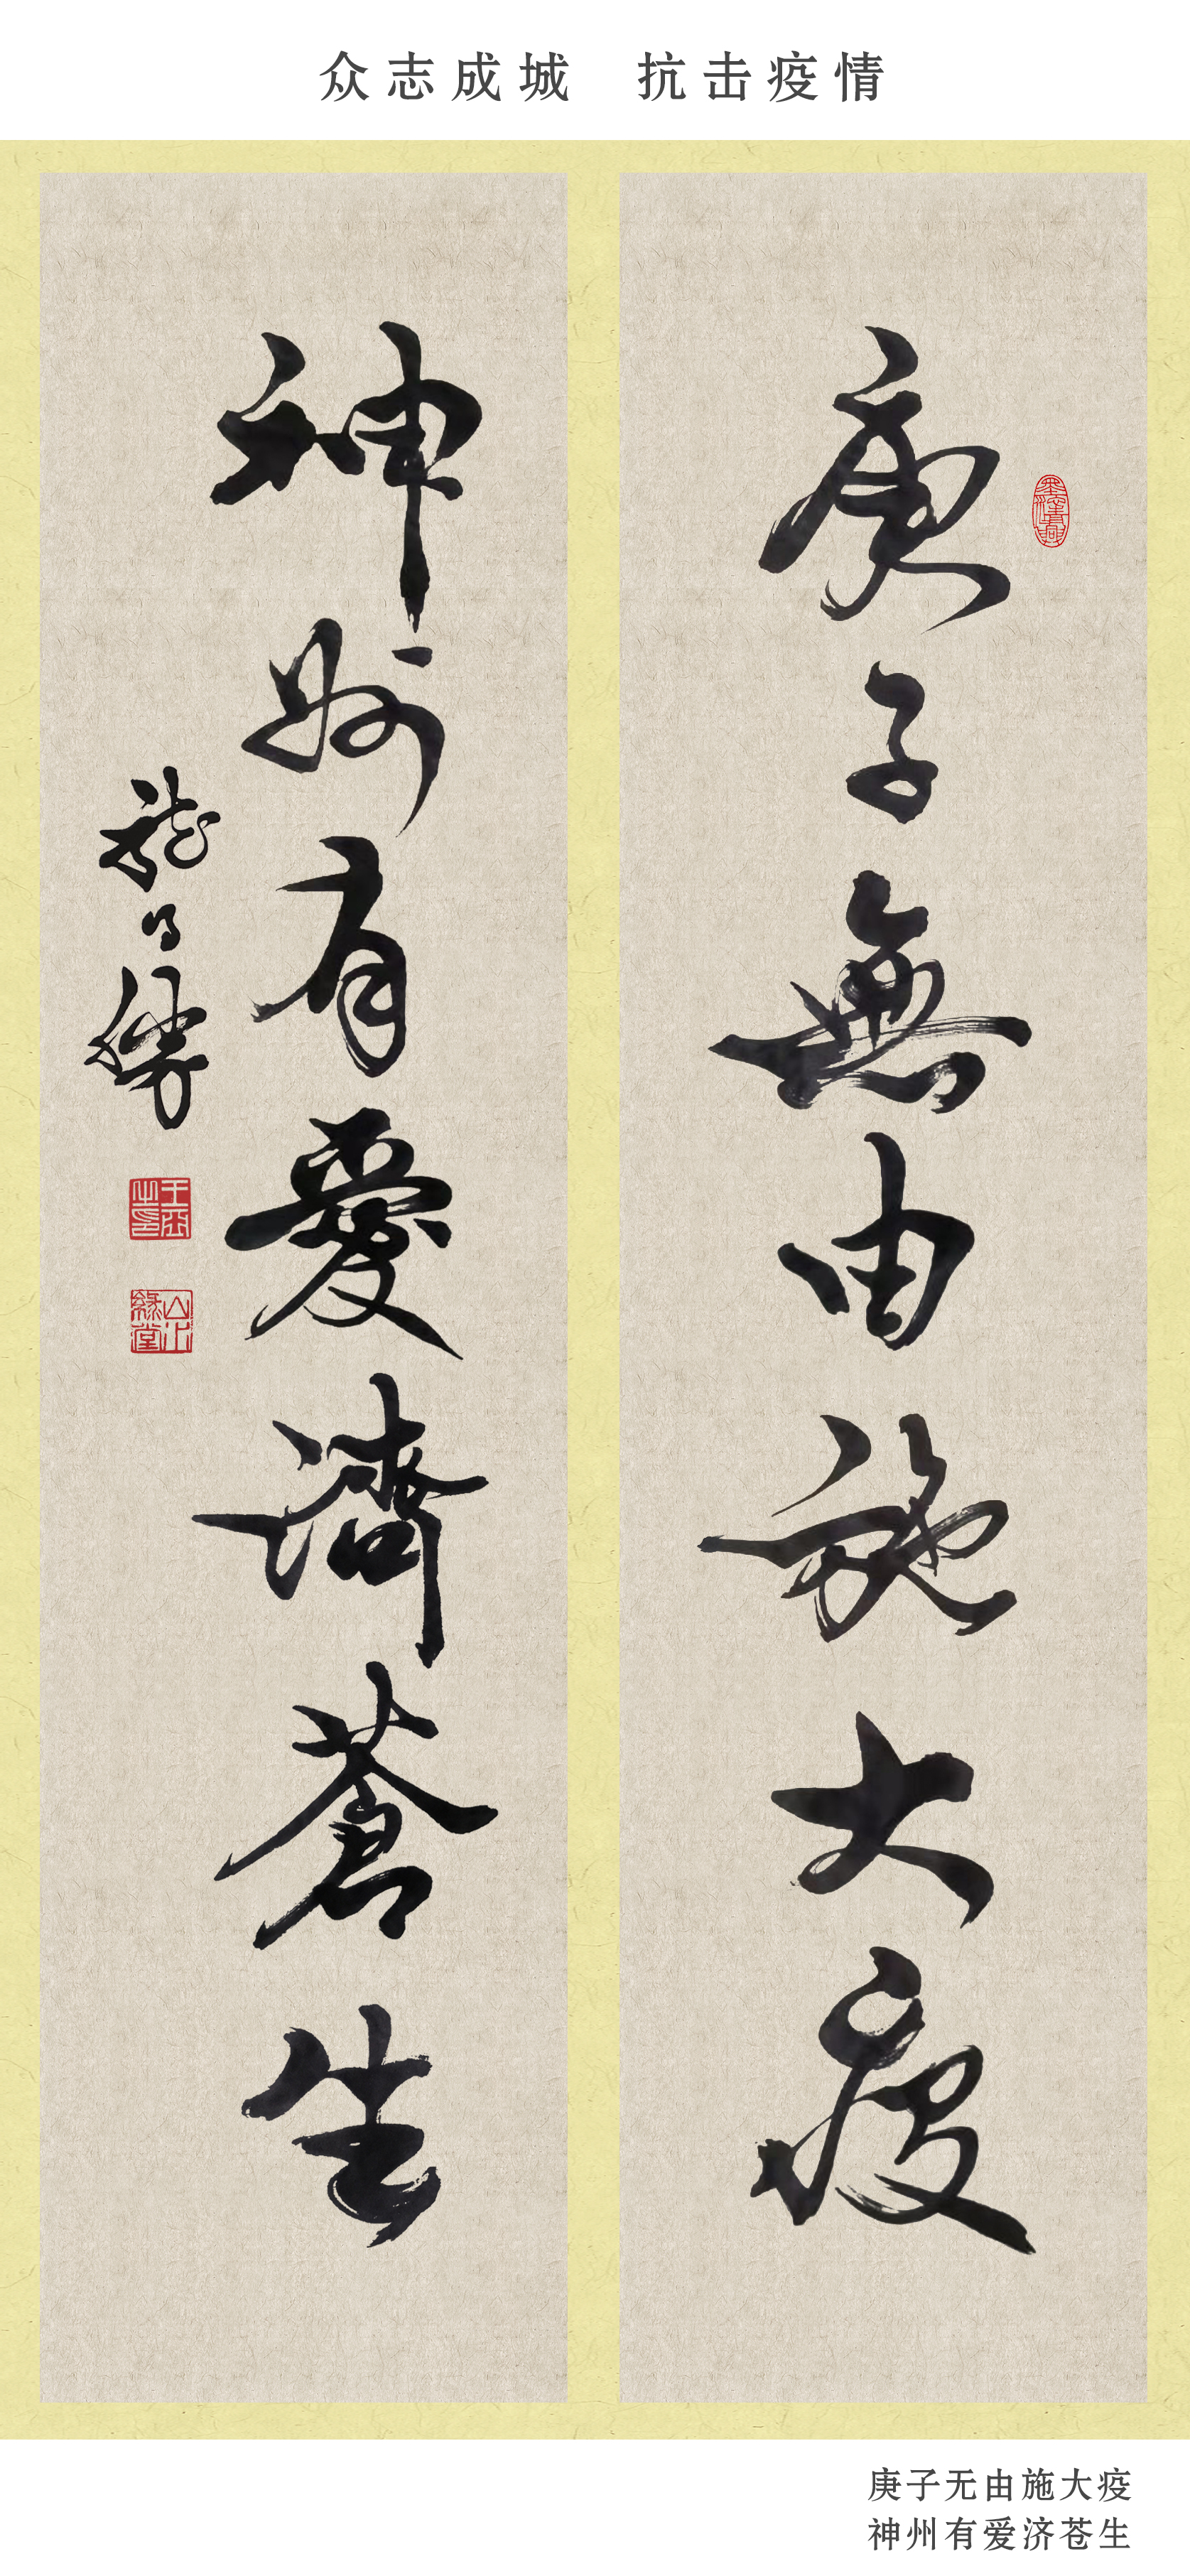 众志成城 抗击疫情
庚子無由施大疫
神州有愛濟蒼生
庚子无由施大疫
神州有爱济苍生